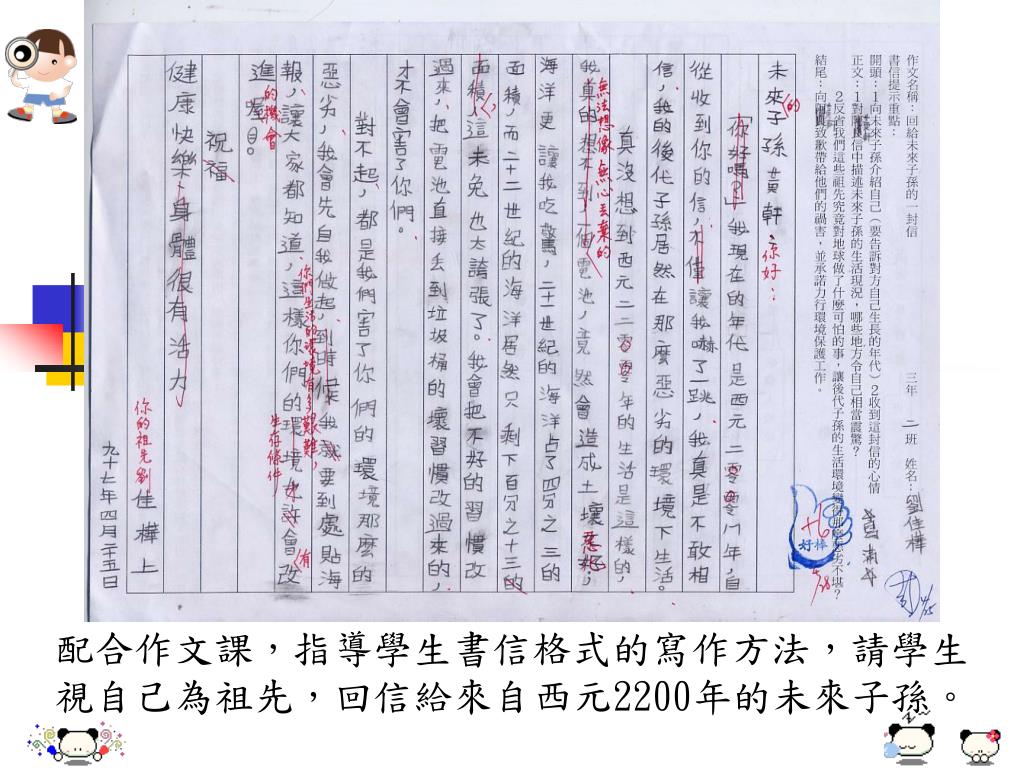 作文名稱：回給未來子孫的一封信
三年 二 班 姓名：劉佳樺
書信提示重點：
開頭：1向未來子孫介紹自己（要告訴對方自己生長的年代）2收到這封信的心情
正文：1對 信中描述未來子孫的生活現況，哪些地方令自己相當震驚？
2反省我們這些祖先究竟對地球做了什麼可怕的事，讓後代子孫的生活環境變得那麼惡劣不堪？
結尾：向 致歉帶給他們的禍害，並承諾力行環境保護工作。
好棒
+6
未來(的)子孫黃軒 你好：
「你好嗎？」我現在的年代是西元二零零八年，自
從收到你的信，不僅讓我嚇了一跳，我真是不敢相
信，我的後代子孫居然在那麼惡劣的環境下生活。
真沒想到西元二二零零年的生活是這樣的，
無法想像無心丟棄的
我真的想不到，一個電池，竟然會造成土壤惡化，
海洋更讓我吃驚，二十一世紀的海洋占了四分之三的
面積，而二十二世紀的海洋居然只剩下百分之十三的
面積，這未免也太誇張了。我會把不好的習慣改
過來，把電池直接丟到垃圾桶的壞習慣改過來的，
才不會害了你們。
對不起，都是我們害了你們的環境那麼的
惡劣，我會先自我做起，到時候我或要到處貼海
你們生活的環境有多艱難，
報，讓大家都知道，這樣你們的環境也許會改
生存條件
(有)
進的機會喔！
祝福
健康快樂、身體很有活力
你的祖先劉佳樺上
九十七年四月二十五日
配合作文課，指導學生書信格式的寫作方法，請學生
視自己為祖先，回信給來自西元2200年的未來子孫。